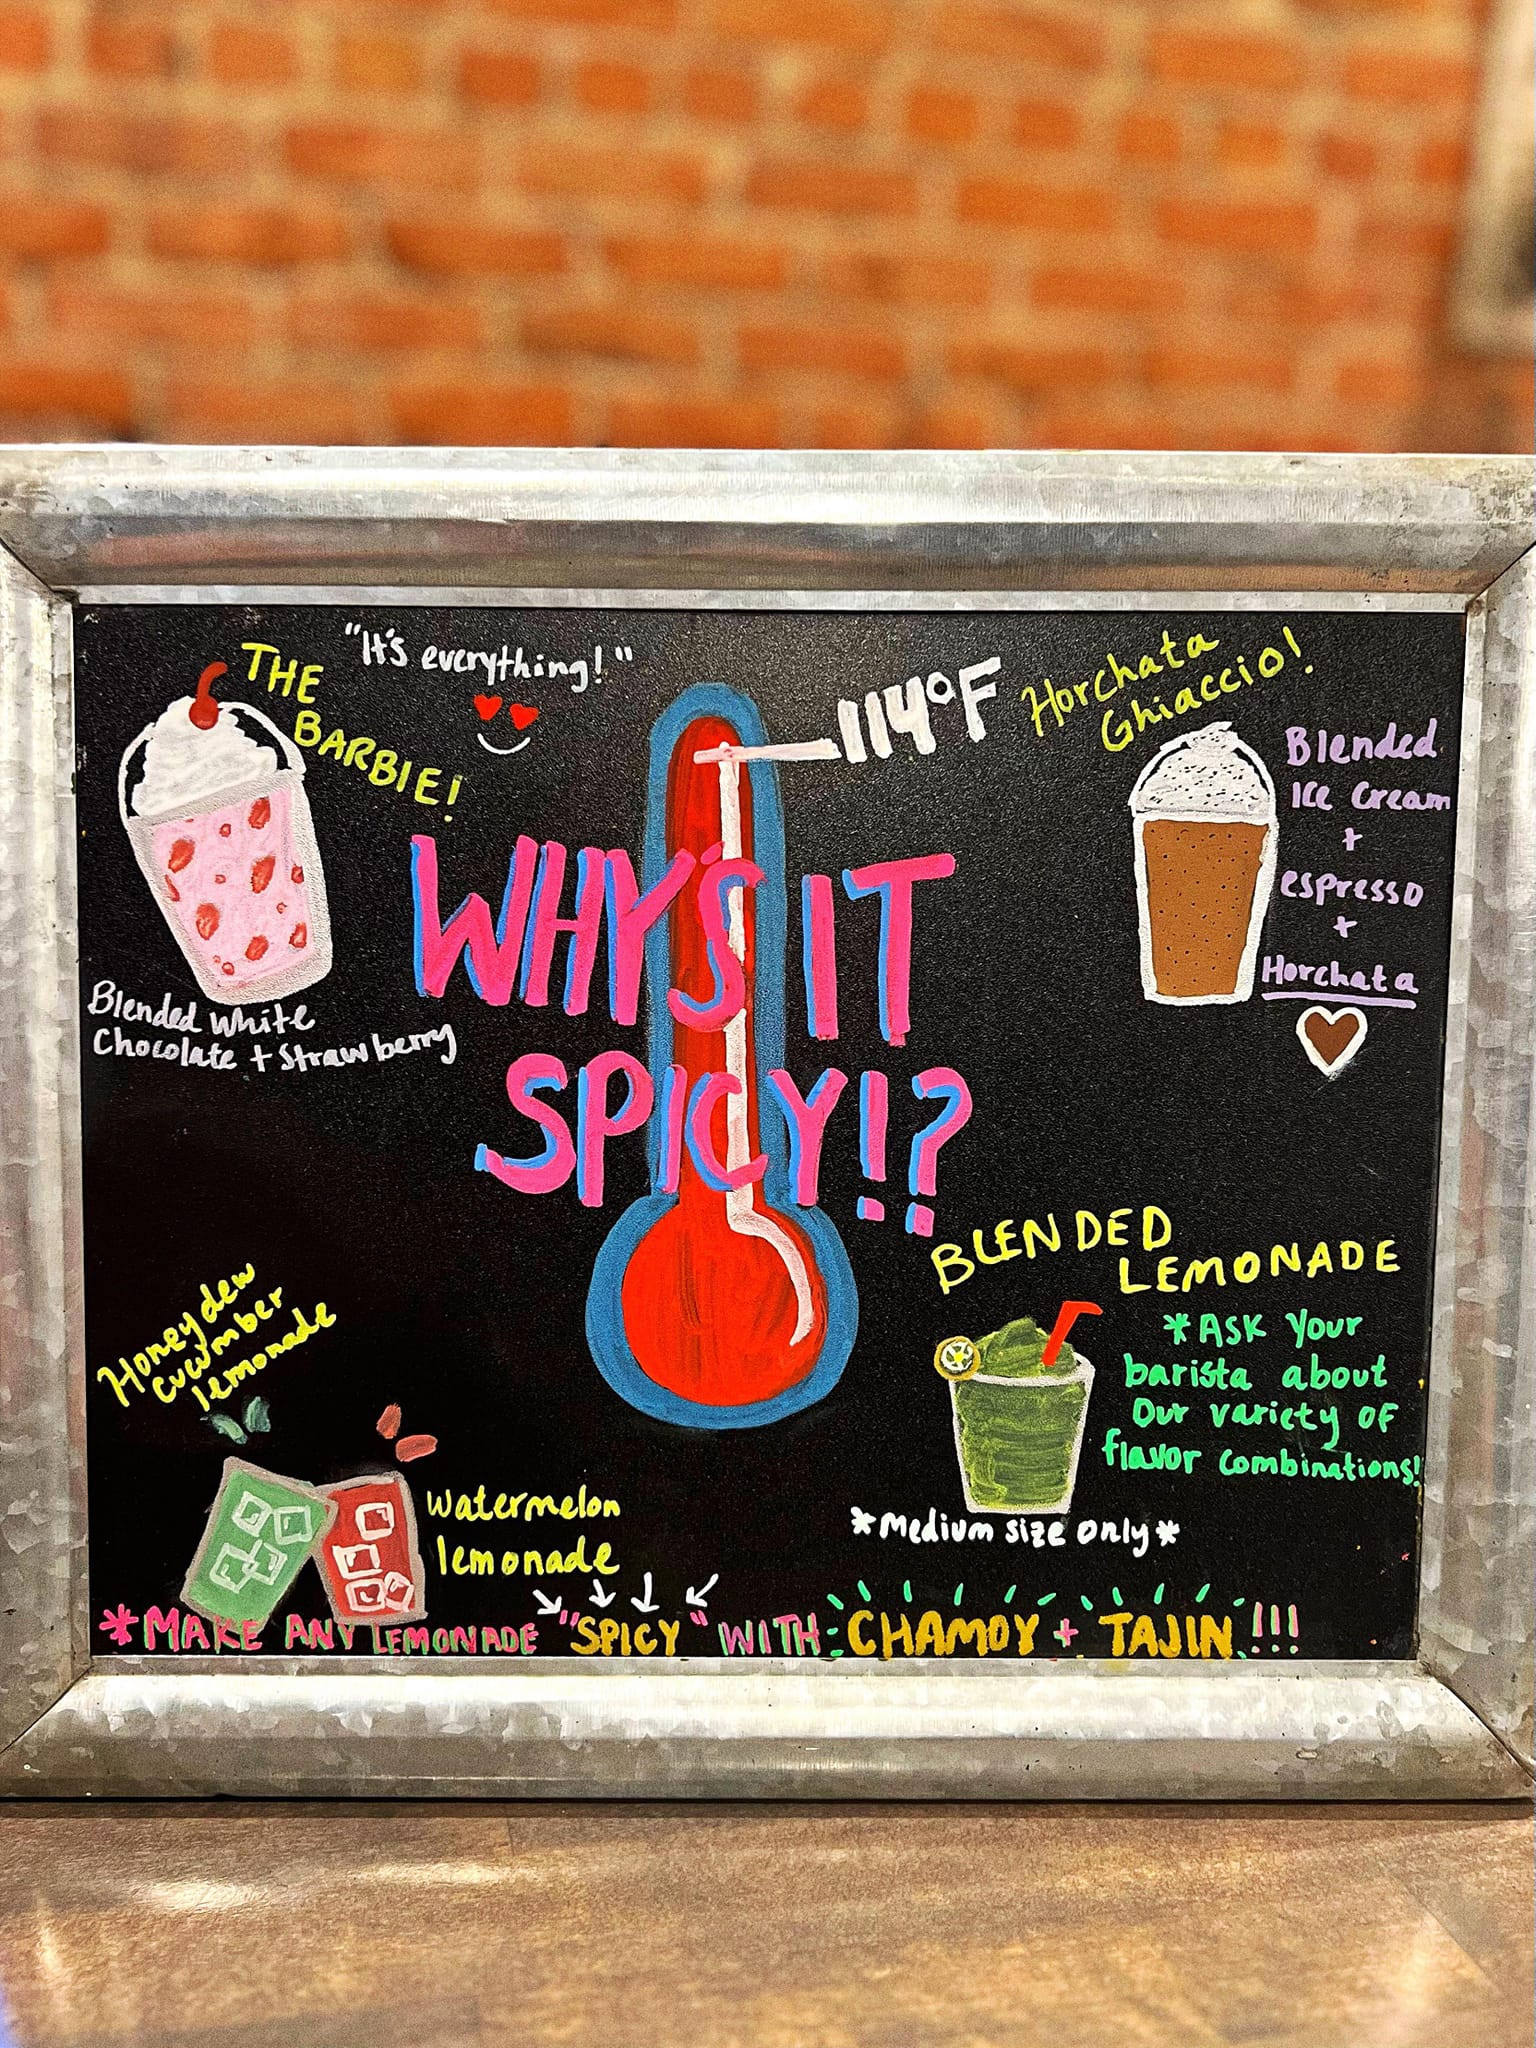 "It's everything!"
THE
BARBIE!
Blended White
Chocolate + Strawberry
114°F
Horchata
Ghiaccio!
Blended
Ice Cream
+
espresso
+
Horchata
WHY'S IT
SPICY!?
BLENDED
LEMONADE
*Ask Your
barista about
Our variety of
flavor combinations!
*Medium size only*
Honeydew
cucumber
lemonade
watermelon
lemonade
*MAKE ANY LEMONADE "SPICY" WITH: CHAMOY + TAJIN!!!